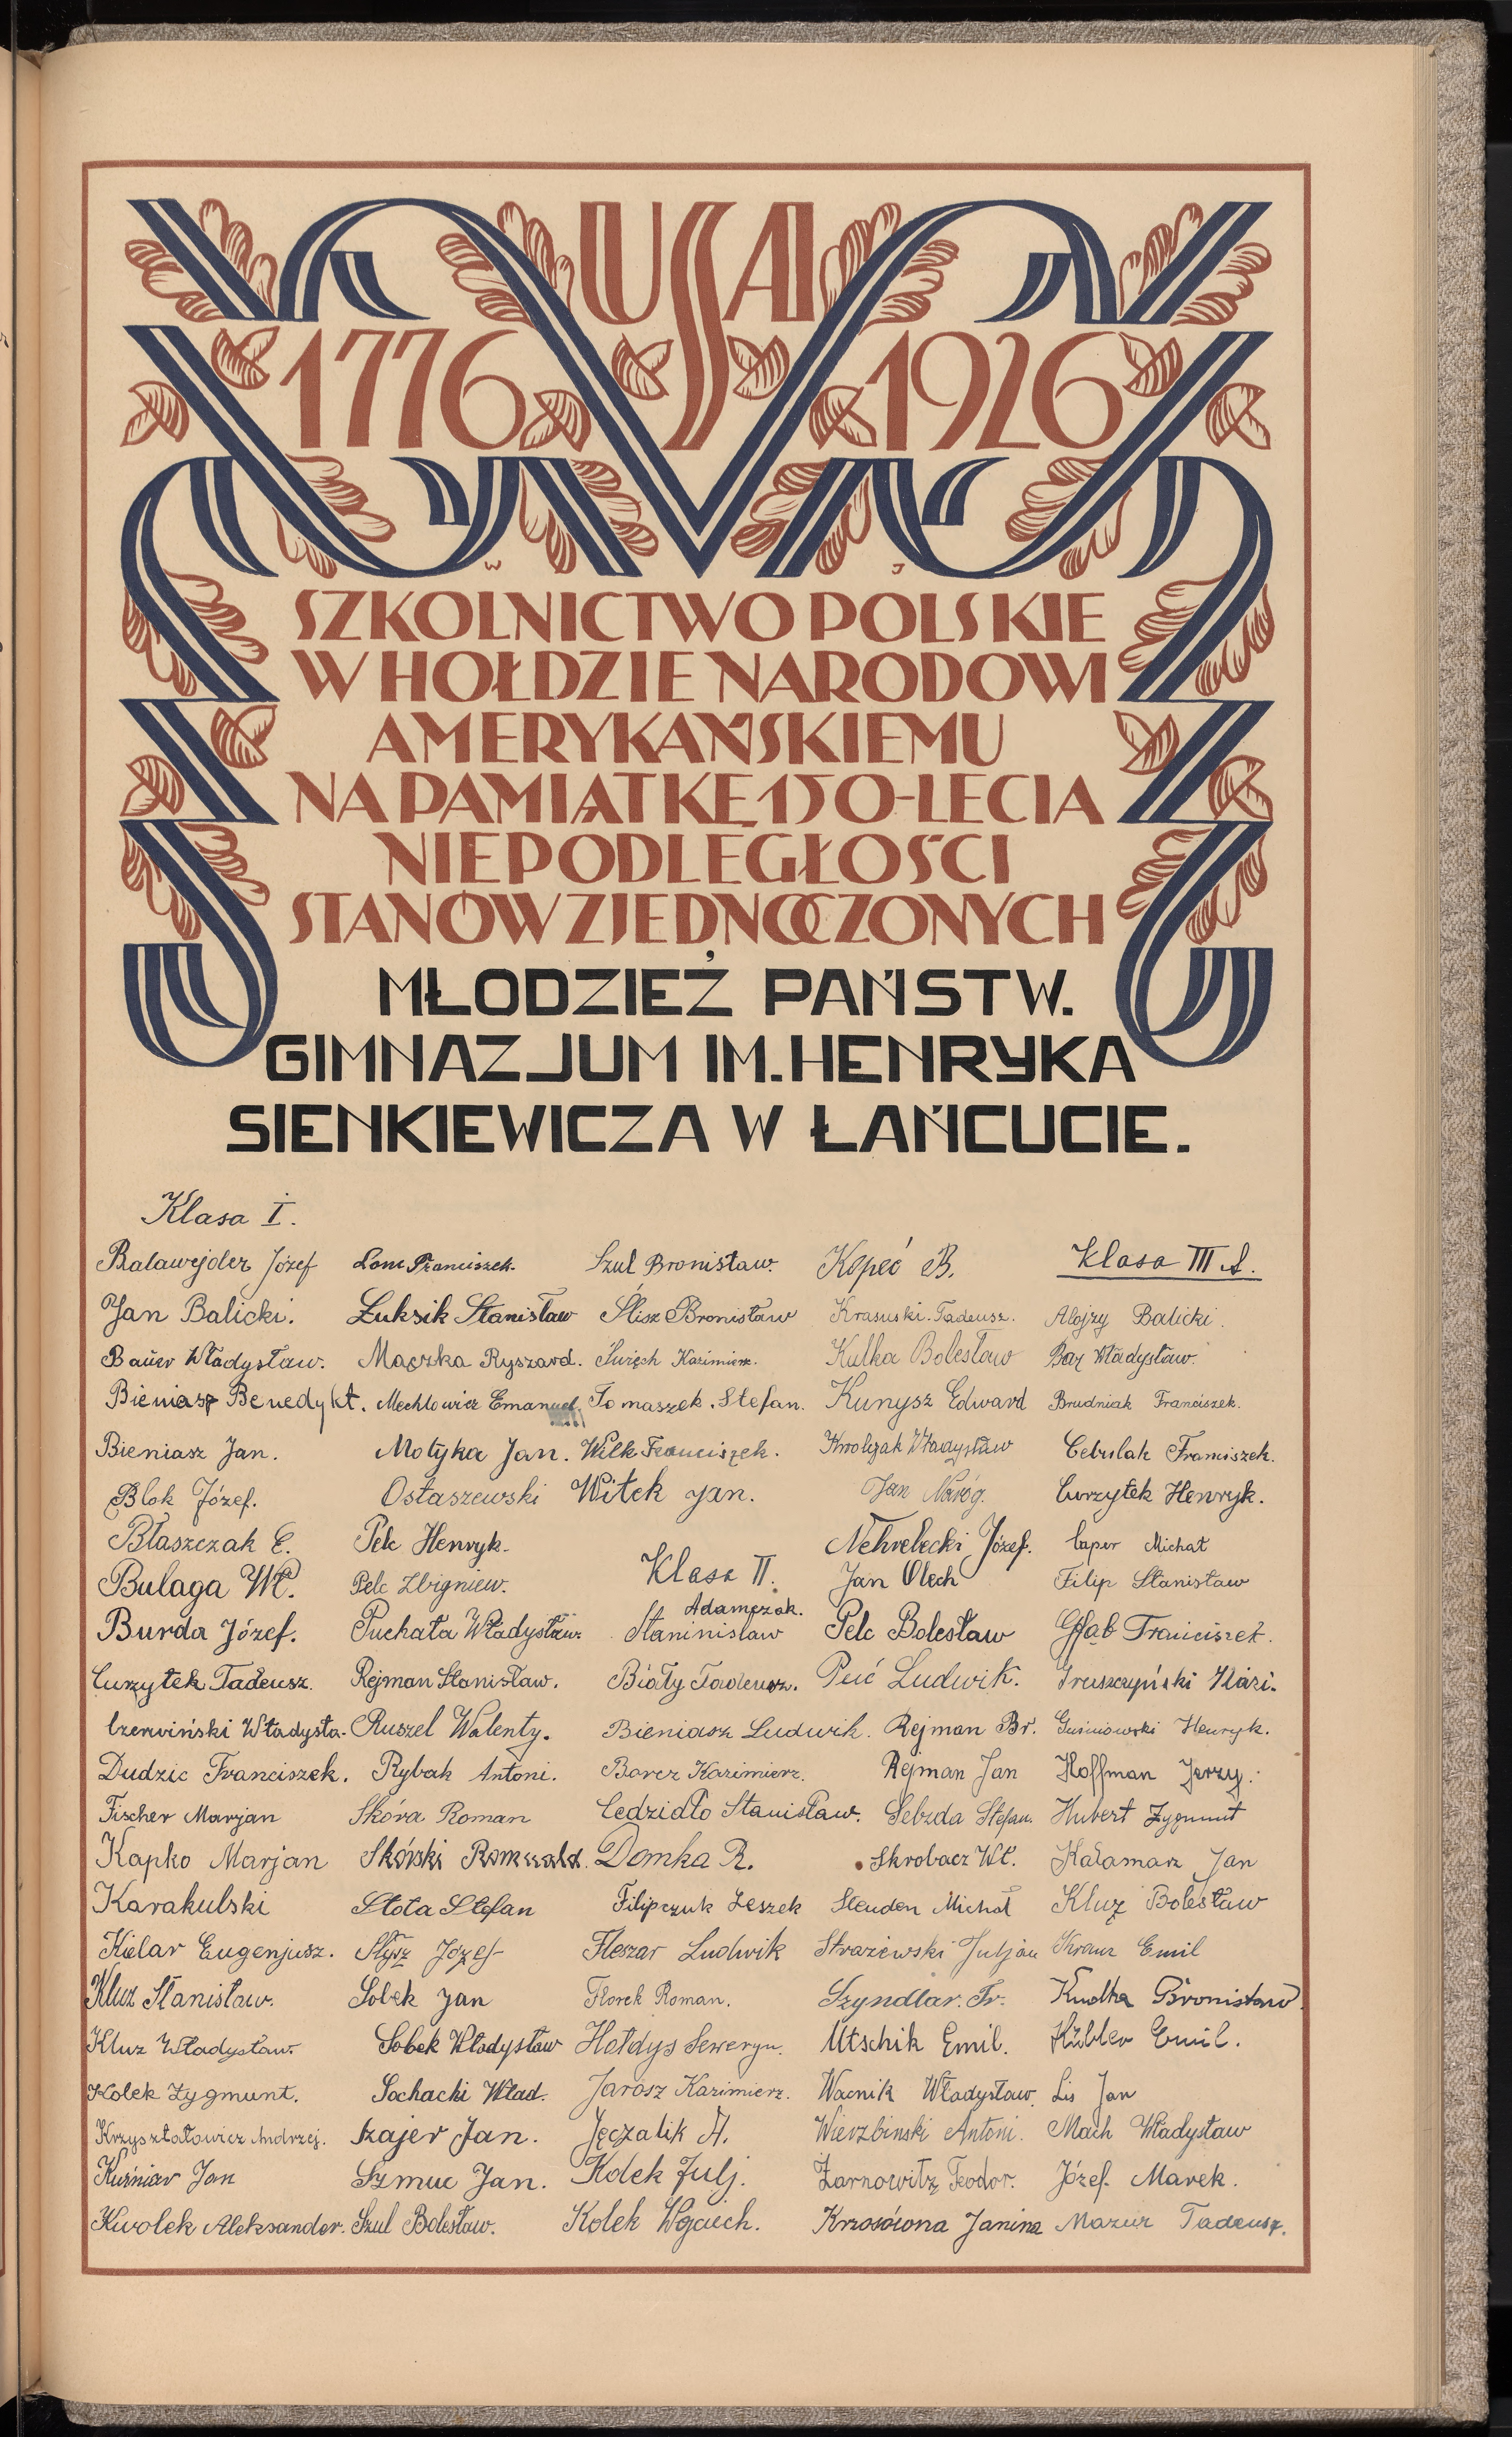 USA
1776 1926
W J
SZKOLNICTWO POLSKIE
W HOŁDZIE NARODOWI
AMERYKAŃSKIEMU
NA PAMIĄTKĘ 150-LECIA
NIEPODLEGŁOŚCI
STANÓW ZJEDNOCZONYCH
MŁODZIEŻ PAŃSTW.
GIMNAZJUM IM. HENRYKA
SIENKIEWICZA W ŁAŃCUCIE.
Klasa I.
Balawejder Józef
Jan Balicki.
Bauer Władysław.
Bieniasz Benedykt.
Bieniasz Jan.
Blok Józef.
Błaszczak E.
Bulaga Wł.
Burda Józef.
Curzytek Tadeusz.
Czerwiński Władysła-
Dudzic Franciszek.
Fischer Marjan
Kapko Marjan
Karakulski
Kielar Eugenjusz.
Kluz Stanisław.
Kluz Władysław
Kolek Zygmunt.
Krzyształowicz Andrzej.
Kuźniar Jan
Kwolek Aleksander.
Lonc Franciszek.
Łuksik Stanisław
Mączka Ryszard.
Mechlowicz Emanuel
Motyka Jan.
Ostaszewski
Pelc Henryk.
Pelc Zbigniew.
Puchała Władysław.
Rejman Stanisław.
Ruszel Walenty.
Rybak Antoni.
Skóra Roman
Skórski Romuald.
Słota Stefan
Słysz Józef
Sobek Jan
Sobek Władysław
Sochacki Wład.
Szajer Jan.
Szmuc Jan.
Szul Bolesław.
Szul Bronisław.
Ślisz Bronisław
Święch Kazimierz.
Tomaszek Stefan.
Wilk Franciszek.
Witek Jan.
Klasa II.
Adamczak.
Staninisław
Biały Tadeusz.
Bieniasz Ludwik.
Borcz Kazimierz.
Cedzidło Stanisław.
Domka R.
Filipczuk Leszek
Fleszar Ludwik
Florek Roman.
Hołdys Seweryn.
Jarosz Kazimierz.
Jęczalik A.
Kolek Julj.
Kolek Wojciech.
Kopeć B.
Krasuski Tadeusz.
Kulka Bolesław
Kunysz Edward
Władysław
Jan Naróg.
Nehrebecki Józef.
Jan Olech
Pelc Bolesław
Puć Ludwik.
Rejman Br.
Rejman Jan
Sebzda Stefan.
Skrobacz Wł.
Steuden Michał
Strażewski Juljan
Szyndlar. Fr.
Utschik Emil.
Wacnik Władysław.
Wierzbinski Antoni.
Żarnowitz Teodor.
Krzosówna Janina
Klasa III A.
Alojzy Balicki.
Bar Władysław.
Brudniak Franciszek.
Cebulak Franciszek.
Curzytek Henryk.
Caper Michał
Filip Stanisław
Głąb Franciszek.
Gruszczyński Kazi.
Guśniowski Henryk.
Hoffman Jerzy.
Hubert Zygmunt
Kałamarz Jan
Kluz Bolesław
Kranz Emil
Kudła Bronisław.
Kübler Emil.
Lis Jan
Mach Władysław
Józef Marek.
Mazur Tadeusz.